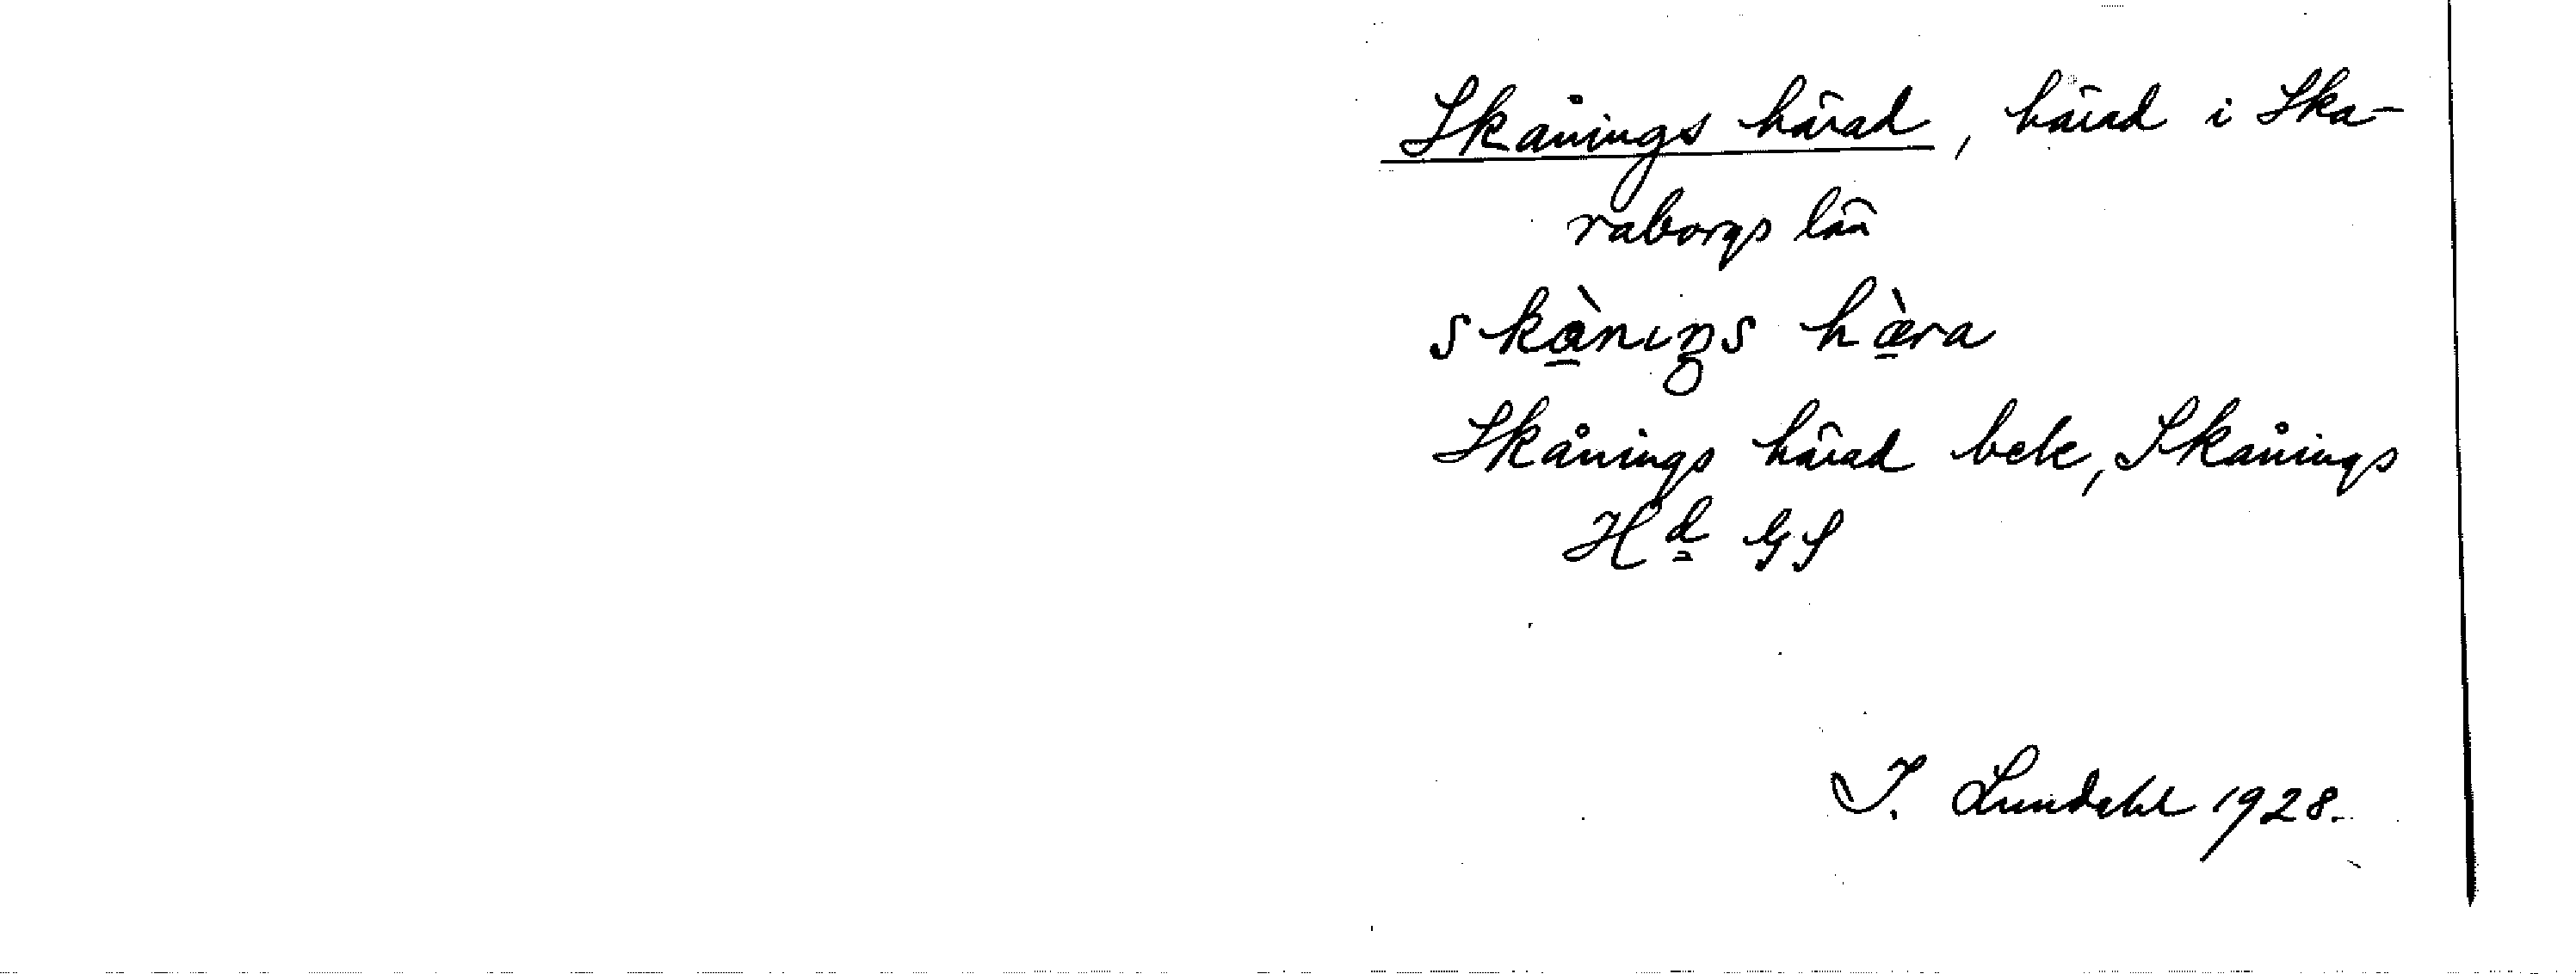 Skånings härad, härad i Ska-
raborgs län
skànıŋs hæ̀ra
Skånings härad bebe, Skånings
Hd GS
I. Lundahl 1928.